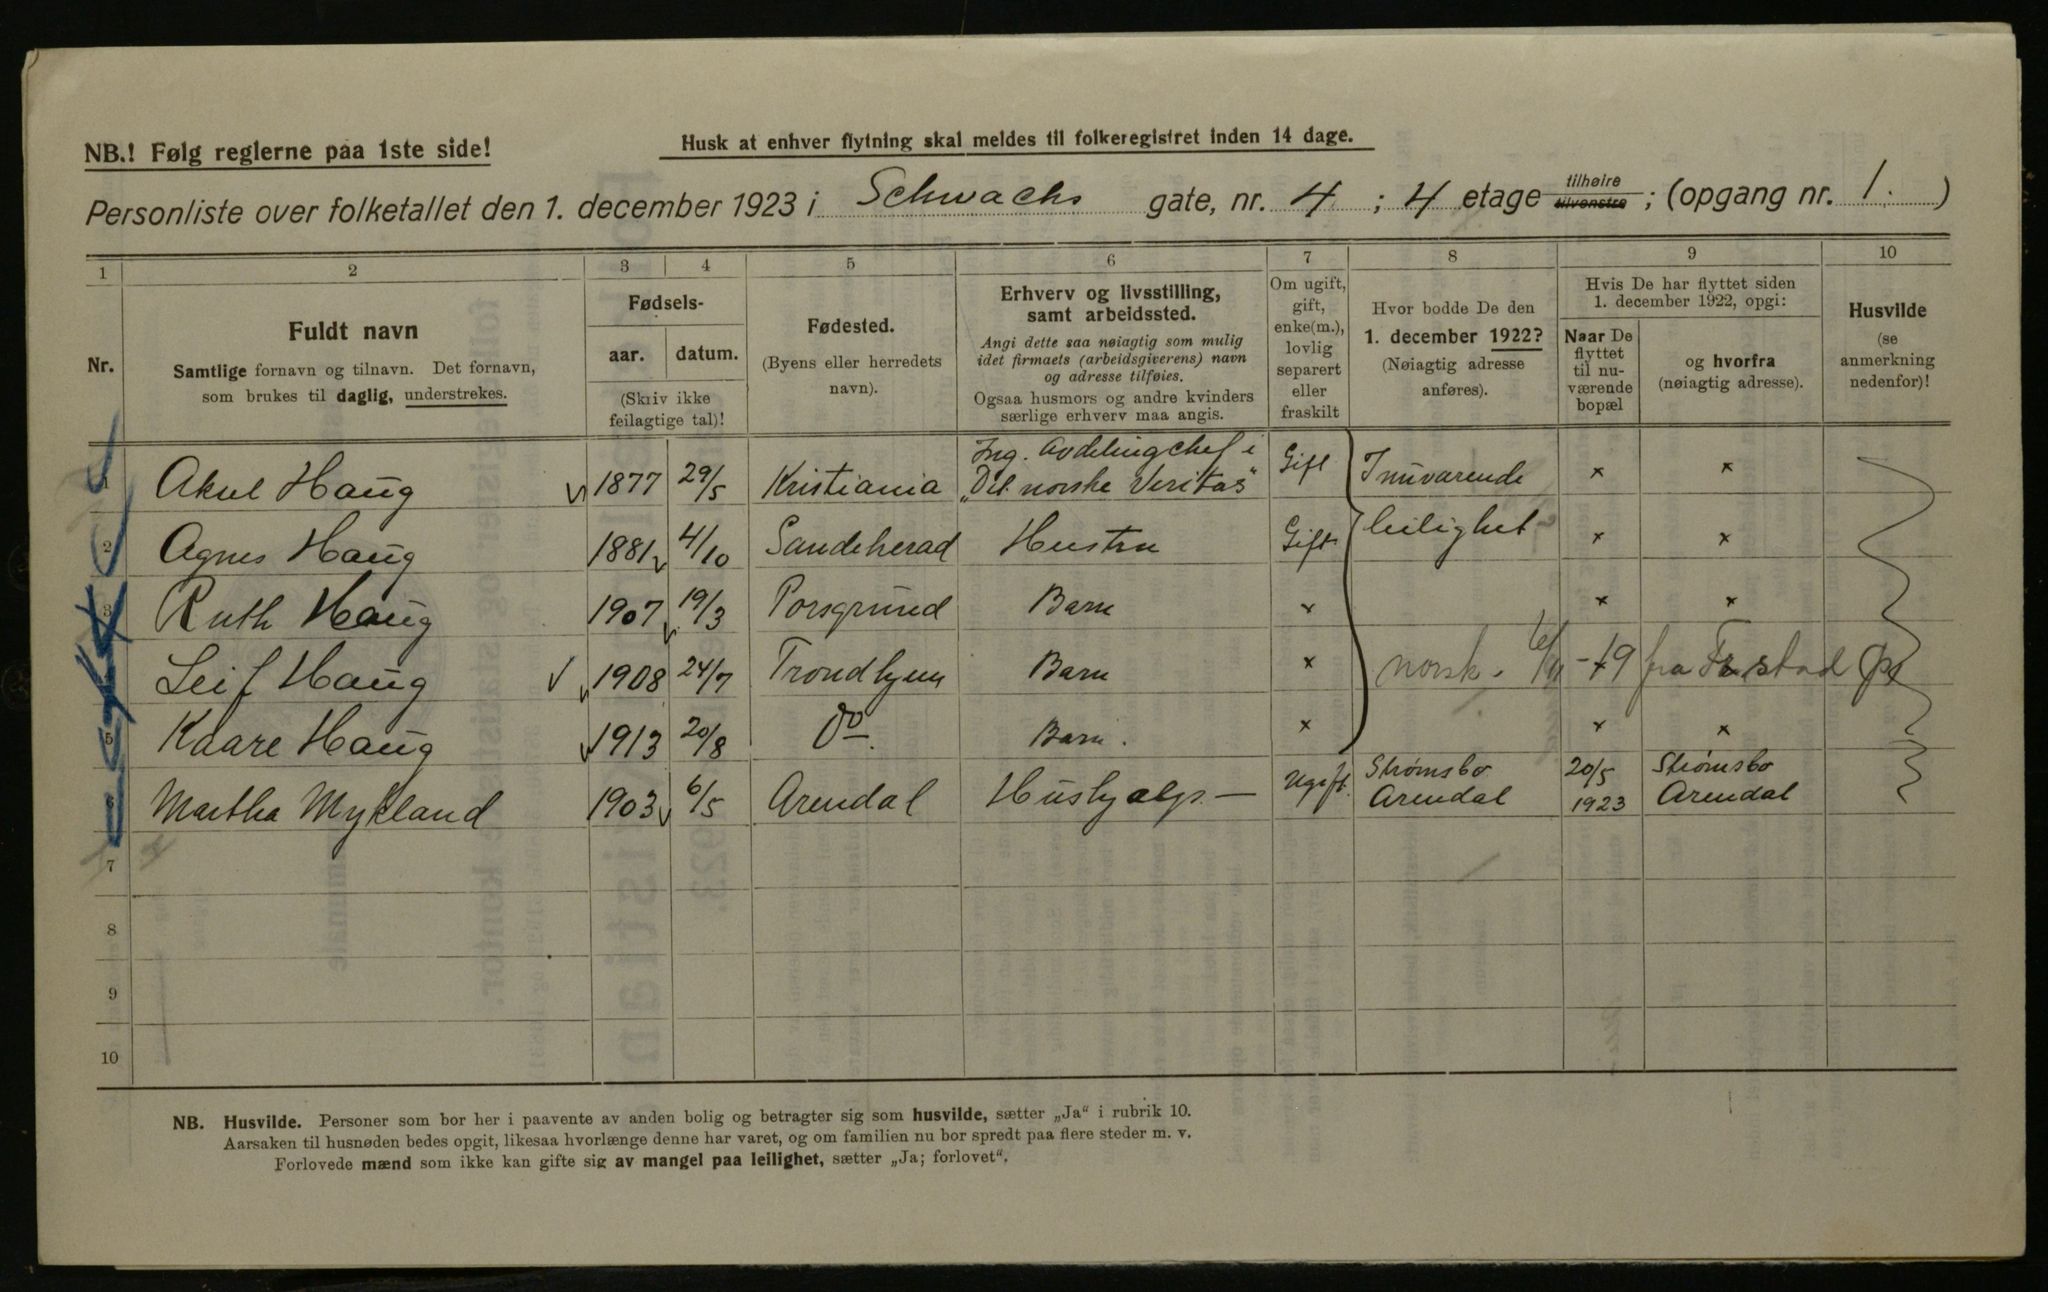 NB.! Følg reglerne paa 1ste side!
Husk at enhver flytning skal meldes til folkeregistret inden 14 dage.
Personliste over folketallet den 1. december 1923 i Schwachs gate, nr. 4 ; 4 etage tilhøire tilvenstre ; (opgang nr. 1. )
1 2 3 4 5 6 7 8 9 10
Nr.
Fuldt navn
Samtlige fornavn og tilnavn. Det fornavn,
som brukes til daglig, understrekes.
Fødsels-
aar. datum.
(Skriv ikke
feilagtige tal)!
Fødested.
(Byens eller herredets
navn).
Erhverv og livsstilling,
samt arbeidssted.
Angi dette saa nøiagtig som mulig
idet firmaets (arbeidsgiverens) navn
og adresse tilføies.
Ogsaa husmors og andre kvinders
særlige erhverv maa angis.
Om ugift,
gift,
enke(m.),
lovlig
separert
eller
fraskilt
Hvor bodde De den
1. december 1922?
(Nøiagtig adresse
anføres).
Hvis De har flyttet siden
1. december 1922, opgi:
Naar De
flyttet
til nu-
værende
bopæl
og hvorfra
(nøiagtig adresse).
Husvilde
(se
anmerkning
nedenfor)!
1 Aksel Haug 1877 29/5 Kristiania Ing. Avdelingchef i „Det norske Veritas“ Gift I nuværende x x
2 Agnes Haug 1881 4/10 Sandeherad Hustru Gift leilighet x x
3 Ruth Haug 1907 19/3 Porsgrund Barn x x x
Leif Haug 1908 24/7 Trondhjem Barn x norsk. 6/11 - 19 fra
5 Kaare Haug 1913 20/8 Do Barn. x x x
6 Martha Mykland 1903 6/5 Arendal Hushjælp. — Ugift. Strømsbo Arendal 20/5 1923 Strømsbo Arendal
7
8
9
10
NB. Husvilde. Personer som bor her i paavente av anden bolig og betragter sig som husvilde, sætter „Ja“ i rubrik 10.
Aarsaken til husnøden bedes opgit, likesaa hvorlænge denne har varet, og om familien nu bor spredt paa flere steder m. v.
Forlovede mænd som ikke kan gifte sig av mangel paa leilighet, sætter „Ja; forlovet“.